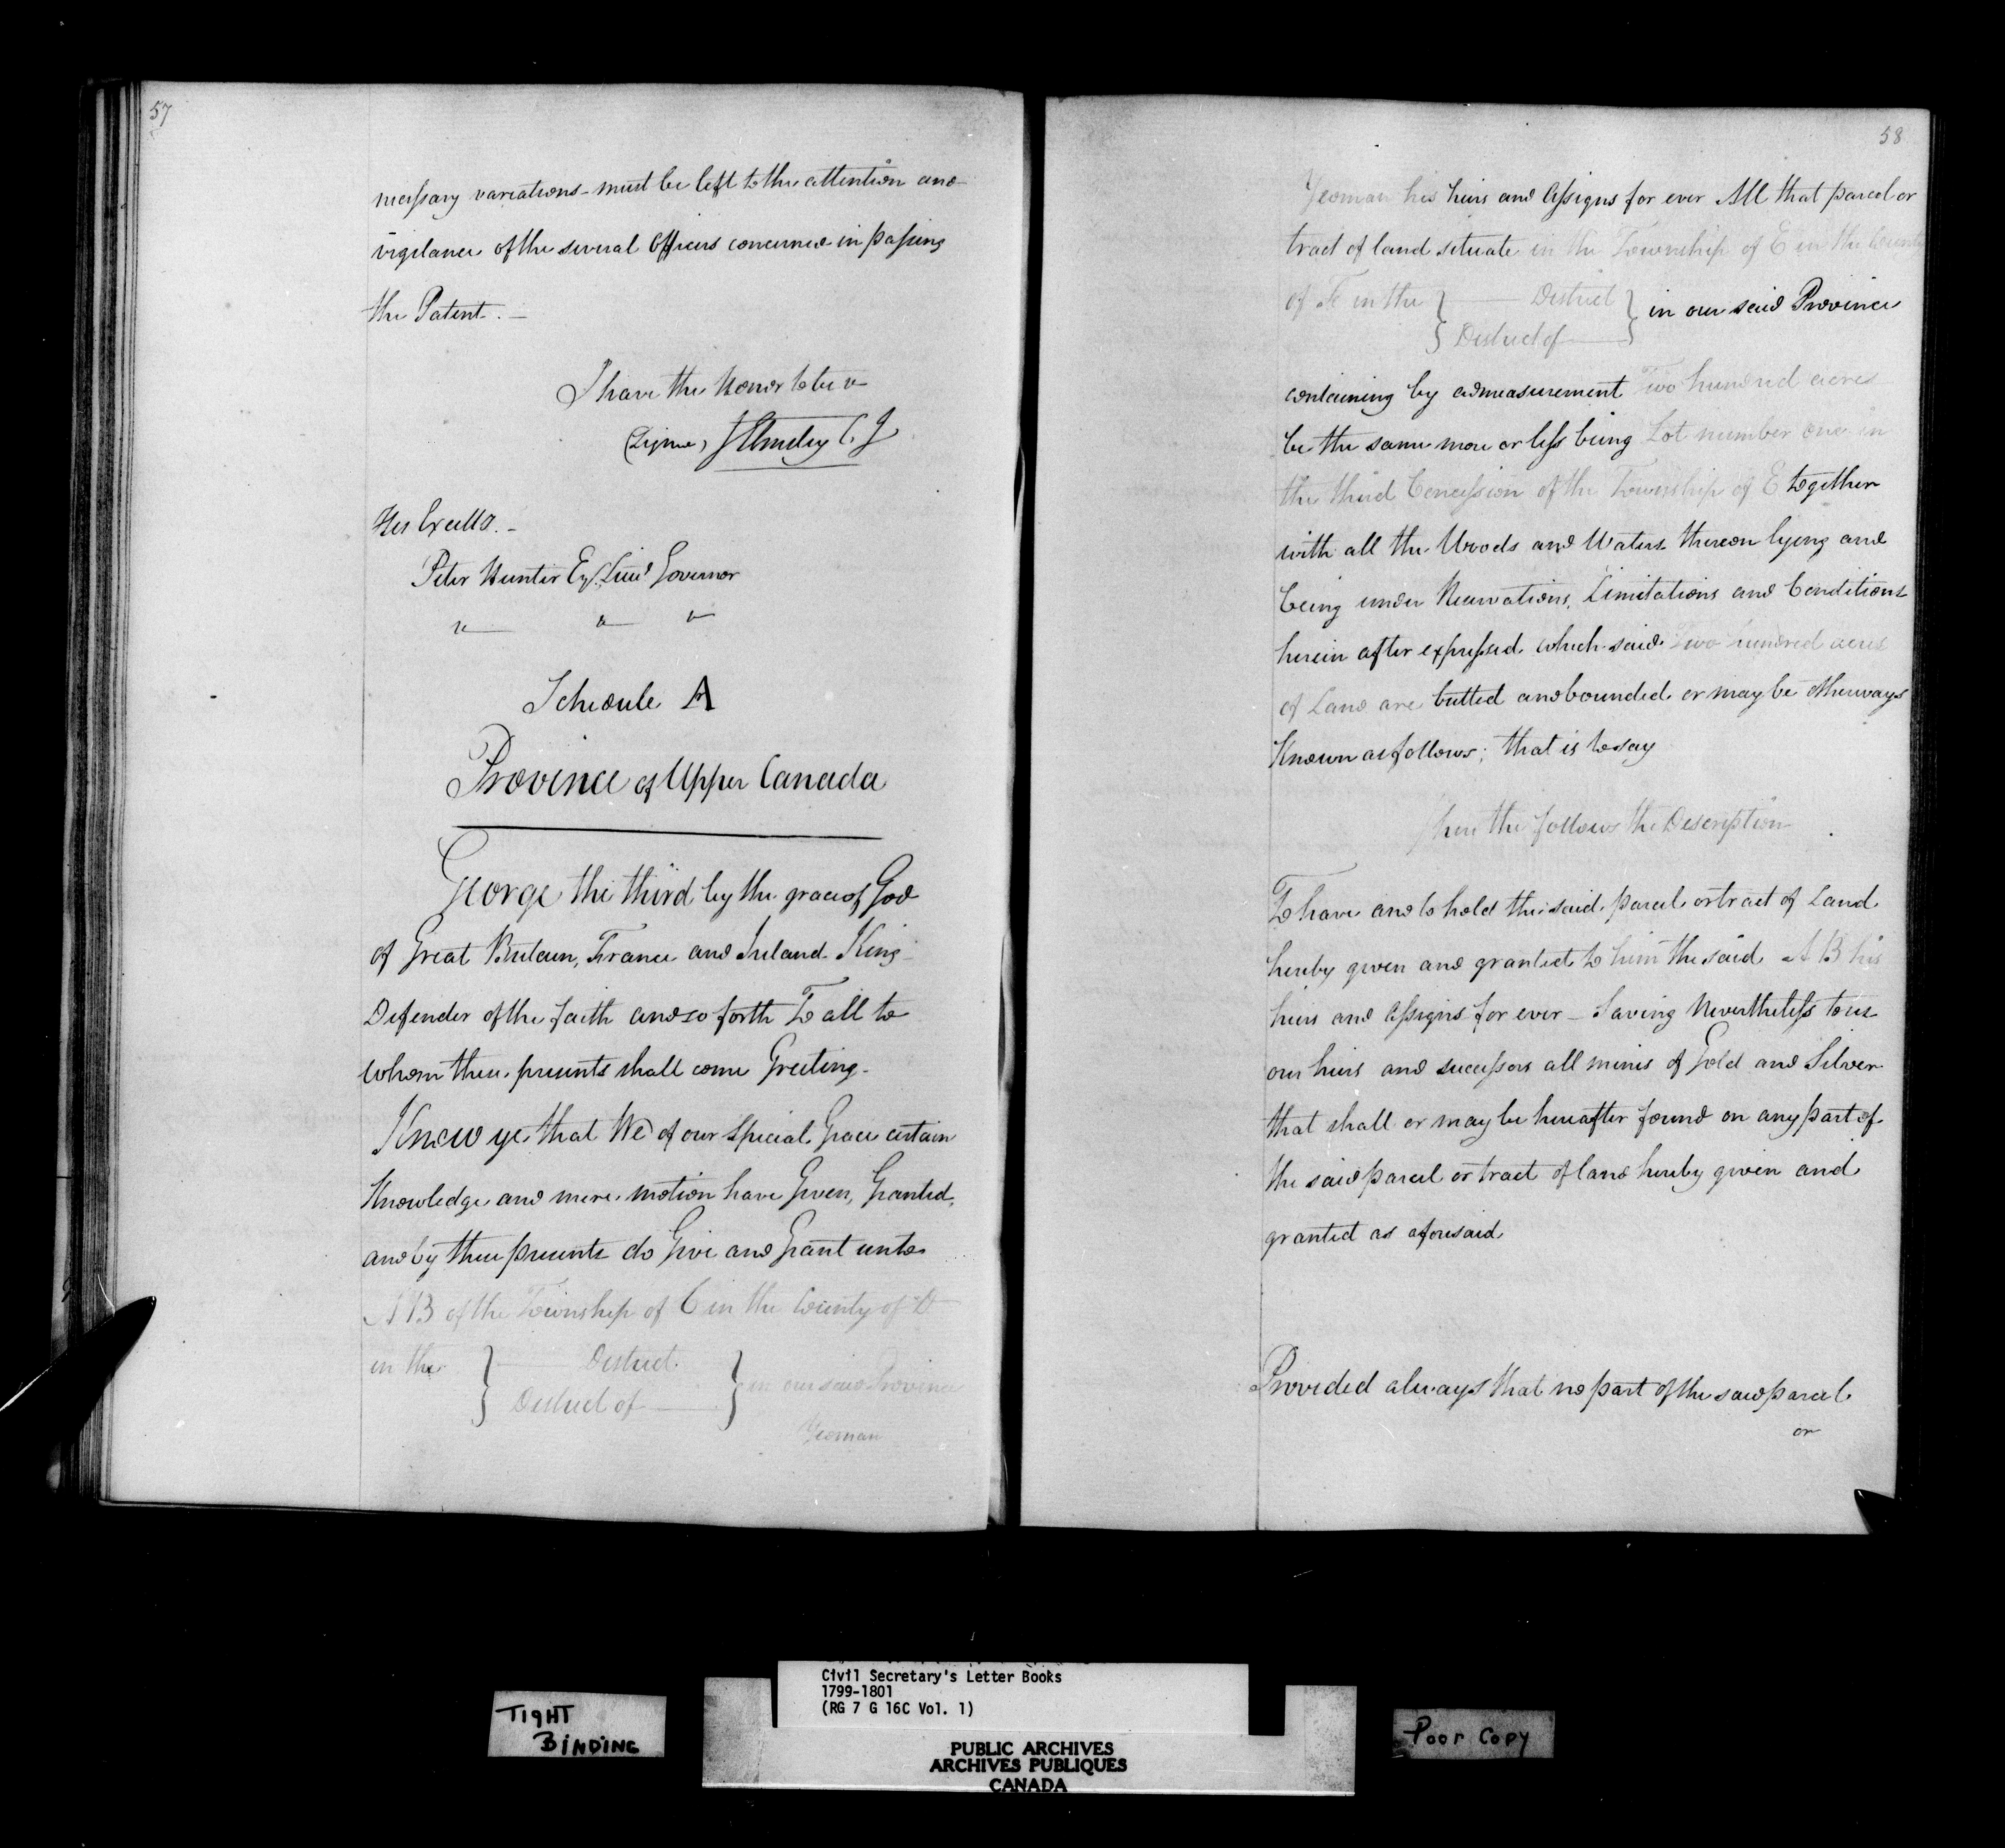 57
necessary variations must be left to the attention and
vigilance of the several Officers concerned in passing
the Patent. —
I have the Honor to be &
(Signed) J Elmsley C. J
His Excelly. —
Peter Hunter Esq. Lieut Governor
" " "
Schedule A
Province of Upper Canada
George the third by the grace of God
of Great Britain, France and Ireland King
Defender of the faith and so forth To all to
whom these presents shall come Greeting.
Know ye that We of our special Grace certain
Knowledge and mere motion have Given, Granted,
and by these presents do Give and Grant unto
A B of the Township of C in the County of D
in the } — District } in our said Province
District of —
Yeoman
58
Yeoman his heirs and Assigns for ever All that parcel or
tract of land situate in the Township of E in the County
of F in the } — District } in our said Province
District of —
containing by admeasurement Two hundred acres
be the same more or less being Lot number one in
the third Concession of the Township of E together
with all the Woods and Waters thereon lying and
being under Reservations, Limitations and Conditions
herein after expressed which said Two hundred acres
of Land are butted and bounded or may be otherways
Known as follows; that is to say
here the follows the Description
To have and to hold the said parcel or tract of Land
hereby given and granted to him the said A B his
heirs and Assigns for ever — Saving Nevertheless to us
our heirs and successors all mines of Gold and Silver
that shall or may be hereafter found on any part of
the said parcel or tract of land hereby given and
granted as aforesaid
Provided always that no part of the said parcel
or
TIGHT
BINDING
Civil Secretary's Letter Books
1799-1801
(RG 7 G 16C Vol. 1)
PUBLIC ARCHIVES
ARCHIVES PUBLIQUES
CANADA
Poor Copy